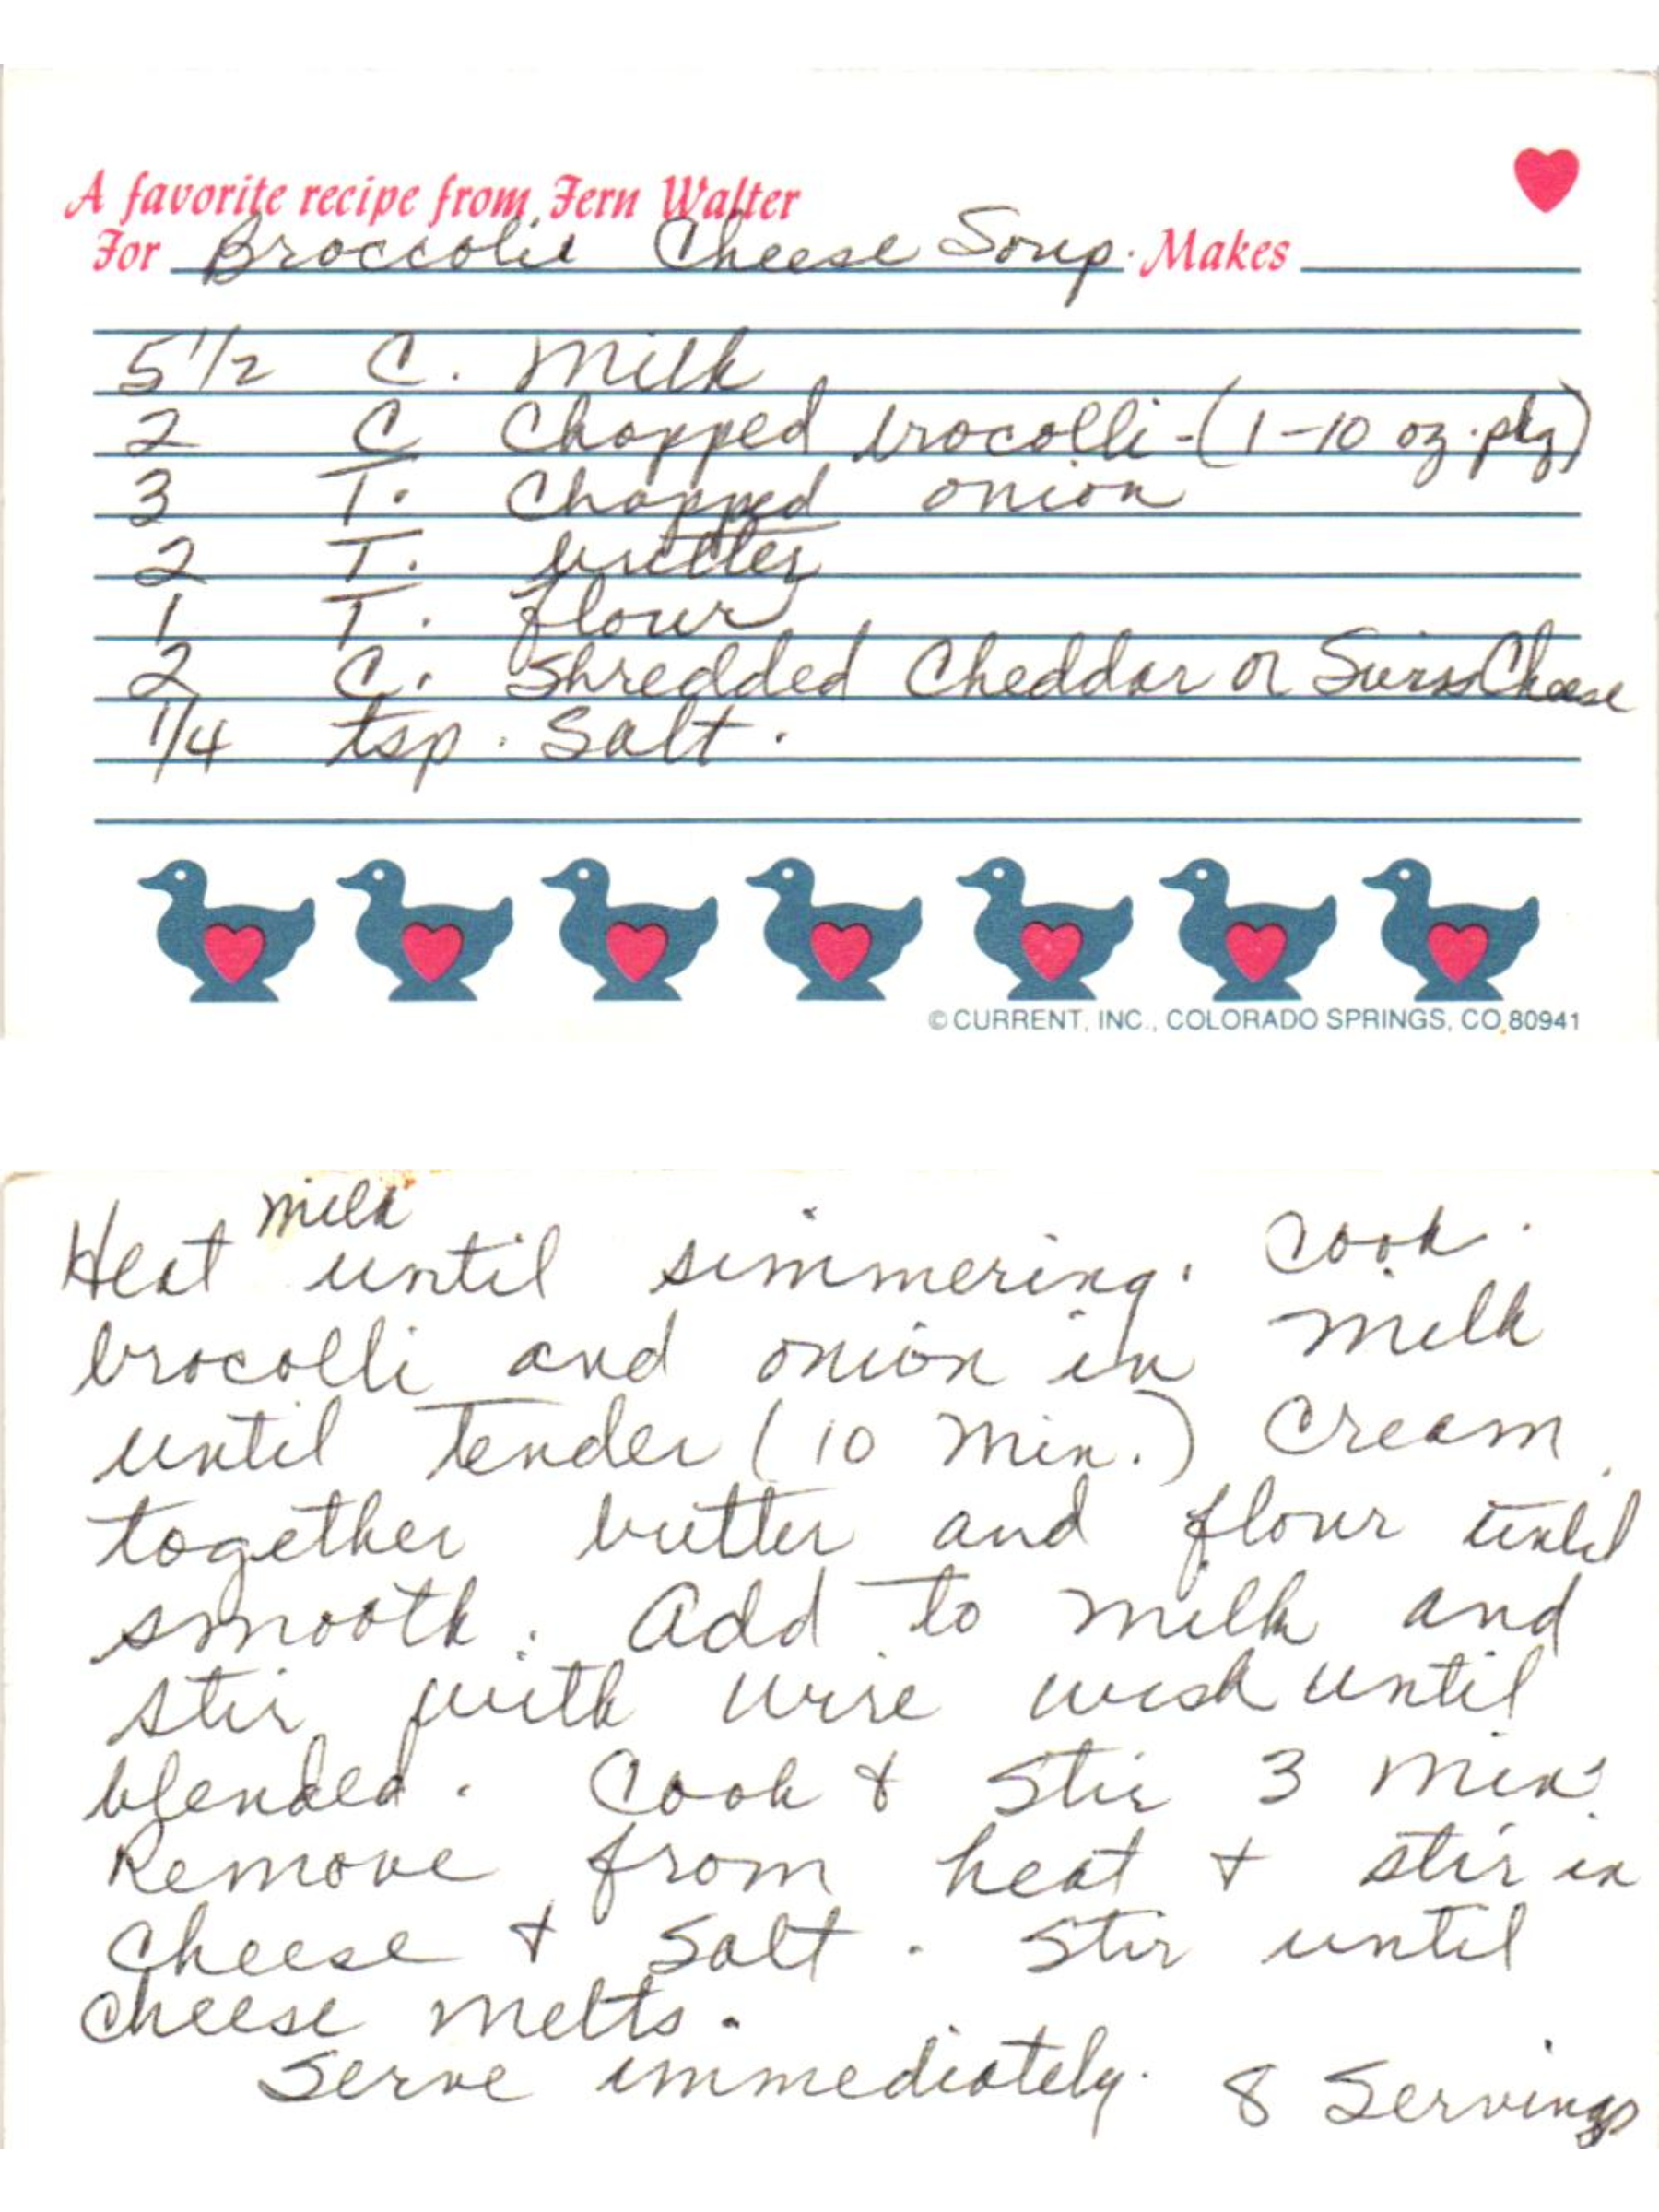 A favorite recipe from Fern Walter
For Broccolie Cheese Soup. Makes
5 1/2 C. Milk
2 C Chopped brocolli - (1-10 oz. pkg)
3 T. Chopped onion
2 T. butter
1 T. flour
2 C. Shredded Cheddar or Swiss Cheese
1/4 tsp. Salt.
© CURRENT, INC., COLORADO SPRINGS, CO 80941
Heat milk until simmering. Cook
brocolli and onion in milk
until tender (10 min.) Cream
together butter and flour until
smooth. Add to milk and
stir with wire wisk until
blended. Cook & stir 3 min.
Remove from heat + stir in
Cheese + Salt. Stir until
Cheese melts.
Serve immediately. 8 Servings